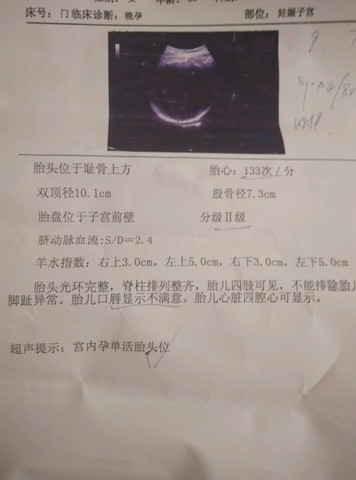 床号: 门 临床诊断: 晚孕 部位: 妊娠子宫
胎头位于耻骨上方 胎心: 133次/分
双顶径10.1cm 股骨径7.3cm
胎盘位于子宫前壁 分级Ⅱ级
脐动脉血流:S/D=2.4
羊水指数: 右上3.0cm, 左上5.0cm, 右下3.0cm, 左下5.0cm
胎头光环完整, 脊柱排列整齐, 胎儿四肢可见, 不能排除胎儿
脚趾异常。胎儿口唇显示不满意。胎儿心脏四腔心可显示。
超声提示: 宫内孕单活胎头位